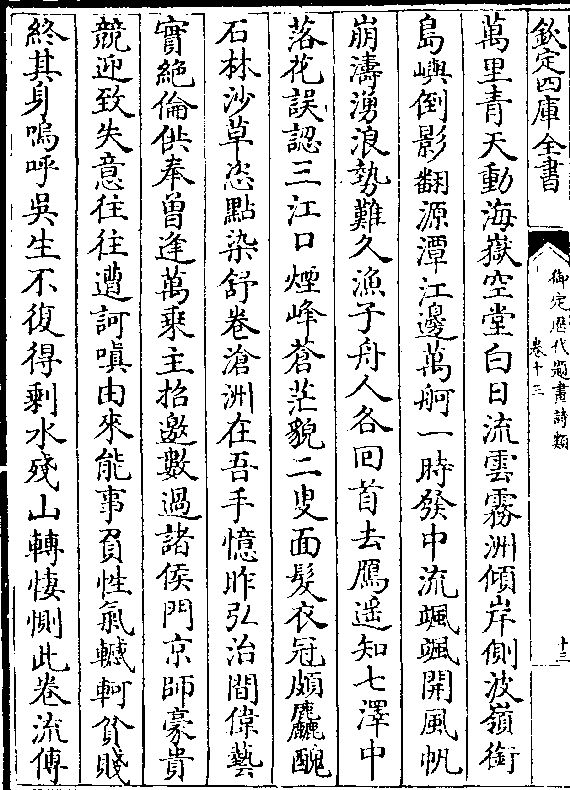 欽定四庫全書
御定歷代題畫詩類
卷十三
十三
萬里青天動海嶽空堂白日流雲霧洲傾岸側波嶺銜
島嶼倒影翻源潭江邊萬舸一時發中流颯颯開風帆
崩濤湧浪勢難久漁子舟人各回首去鴈遥知七澤中
落花誤認三江口煙峰蒼茫貌二叟面髮衣冠頗麤醜
石林沙草恣點染舒卷滄洲在吾手憶昨弘治間偉藝
實絶倫供奉曾逢萬乘主招邀數過諸侯門京師豪貴
競迎致失意往往遭訶嗔由來能事負性氣轗軻貧賤
終其身嗚呼吳生不復得剩水殘山轉悽惻此卷流傳